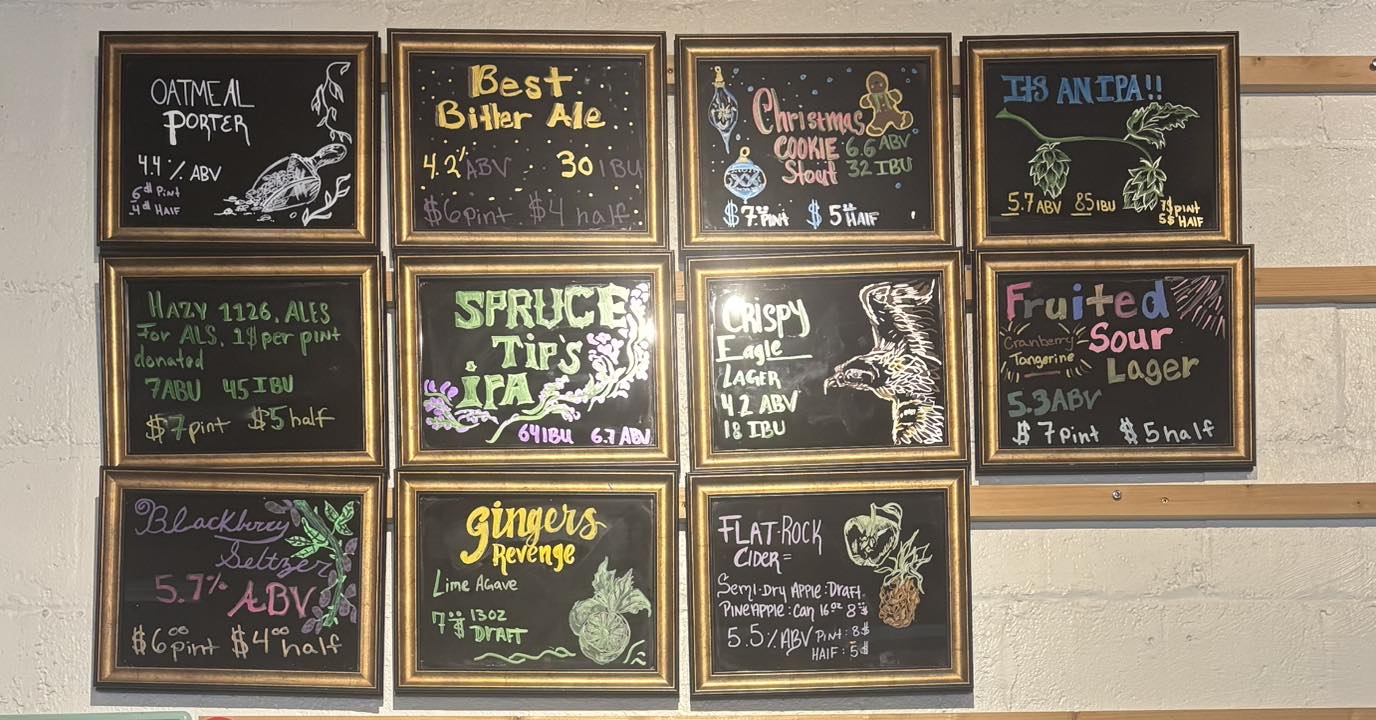 OATMEAL
PORTER
4.4% ABV
Pint
Half
Best
Bitter Ale
4.2% ABV 30 IBU
$6 pint $4 half
Christmas
COOKIE 6.6 ABV
Stout 32 IBU
$7.00 PINT $5.00 HALF
ITS AN IPA!!
5.7 ABV 85 IBU
7$ pint
5$ HALF
HAZY 1126. ALES
For ALS, 1$ per pint
donated
7ABU 45 IBU
$7 pint $5 half
SPRUCE
TiP'S
iPA
64 IBU 6.7 ABV
CRISPY
Eagle
LAGER
4.2 ABV
18 IBU
Fruited
Cranberry- Sour
Tangerine
Lager
5.3 ABV
$7 pint $5 half
Blackberry
Seltzer
5.7% ABV
$6.00 pint $4.00 half
Gingers
Revenge
Lime Agave
7.00$ 13OZ
DRAFT
FLAT-ROCK
CIDER=
Semi-Dry APPLE: DRAFT
PINEAPPLE: Can 16oz 8$
5.5% ABV PINT: 8$
HALF: 5$